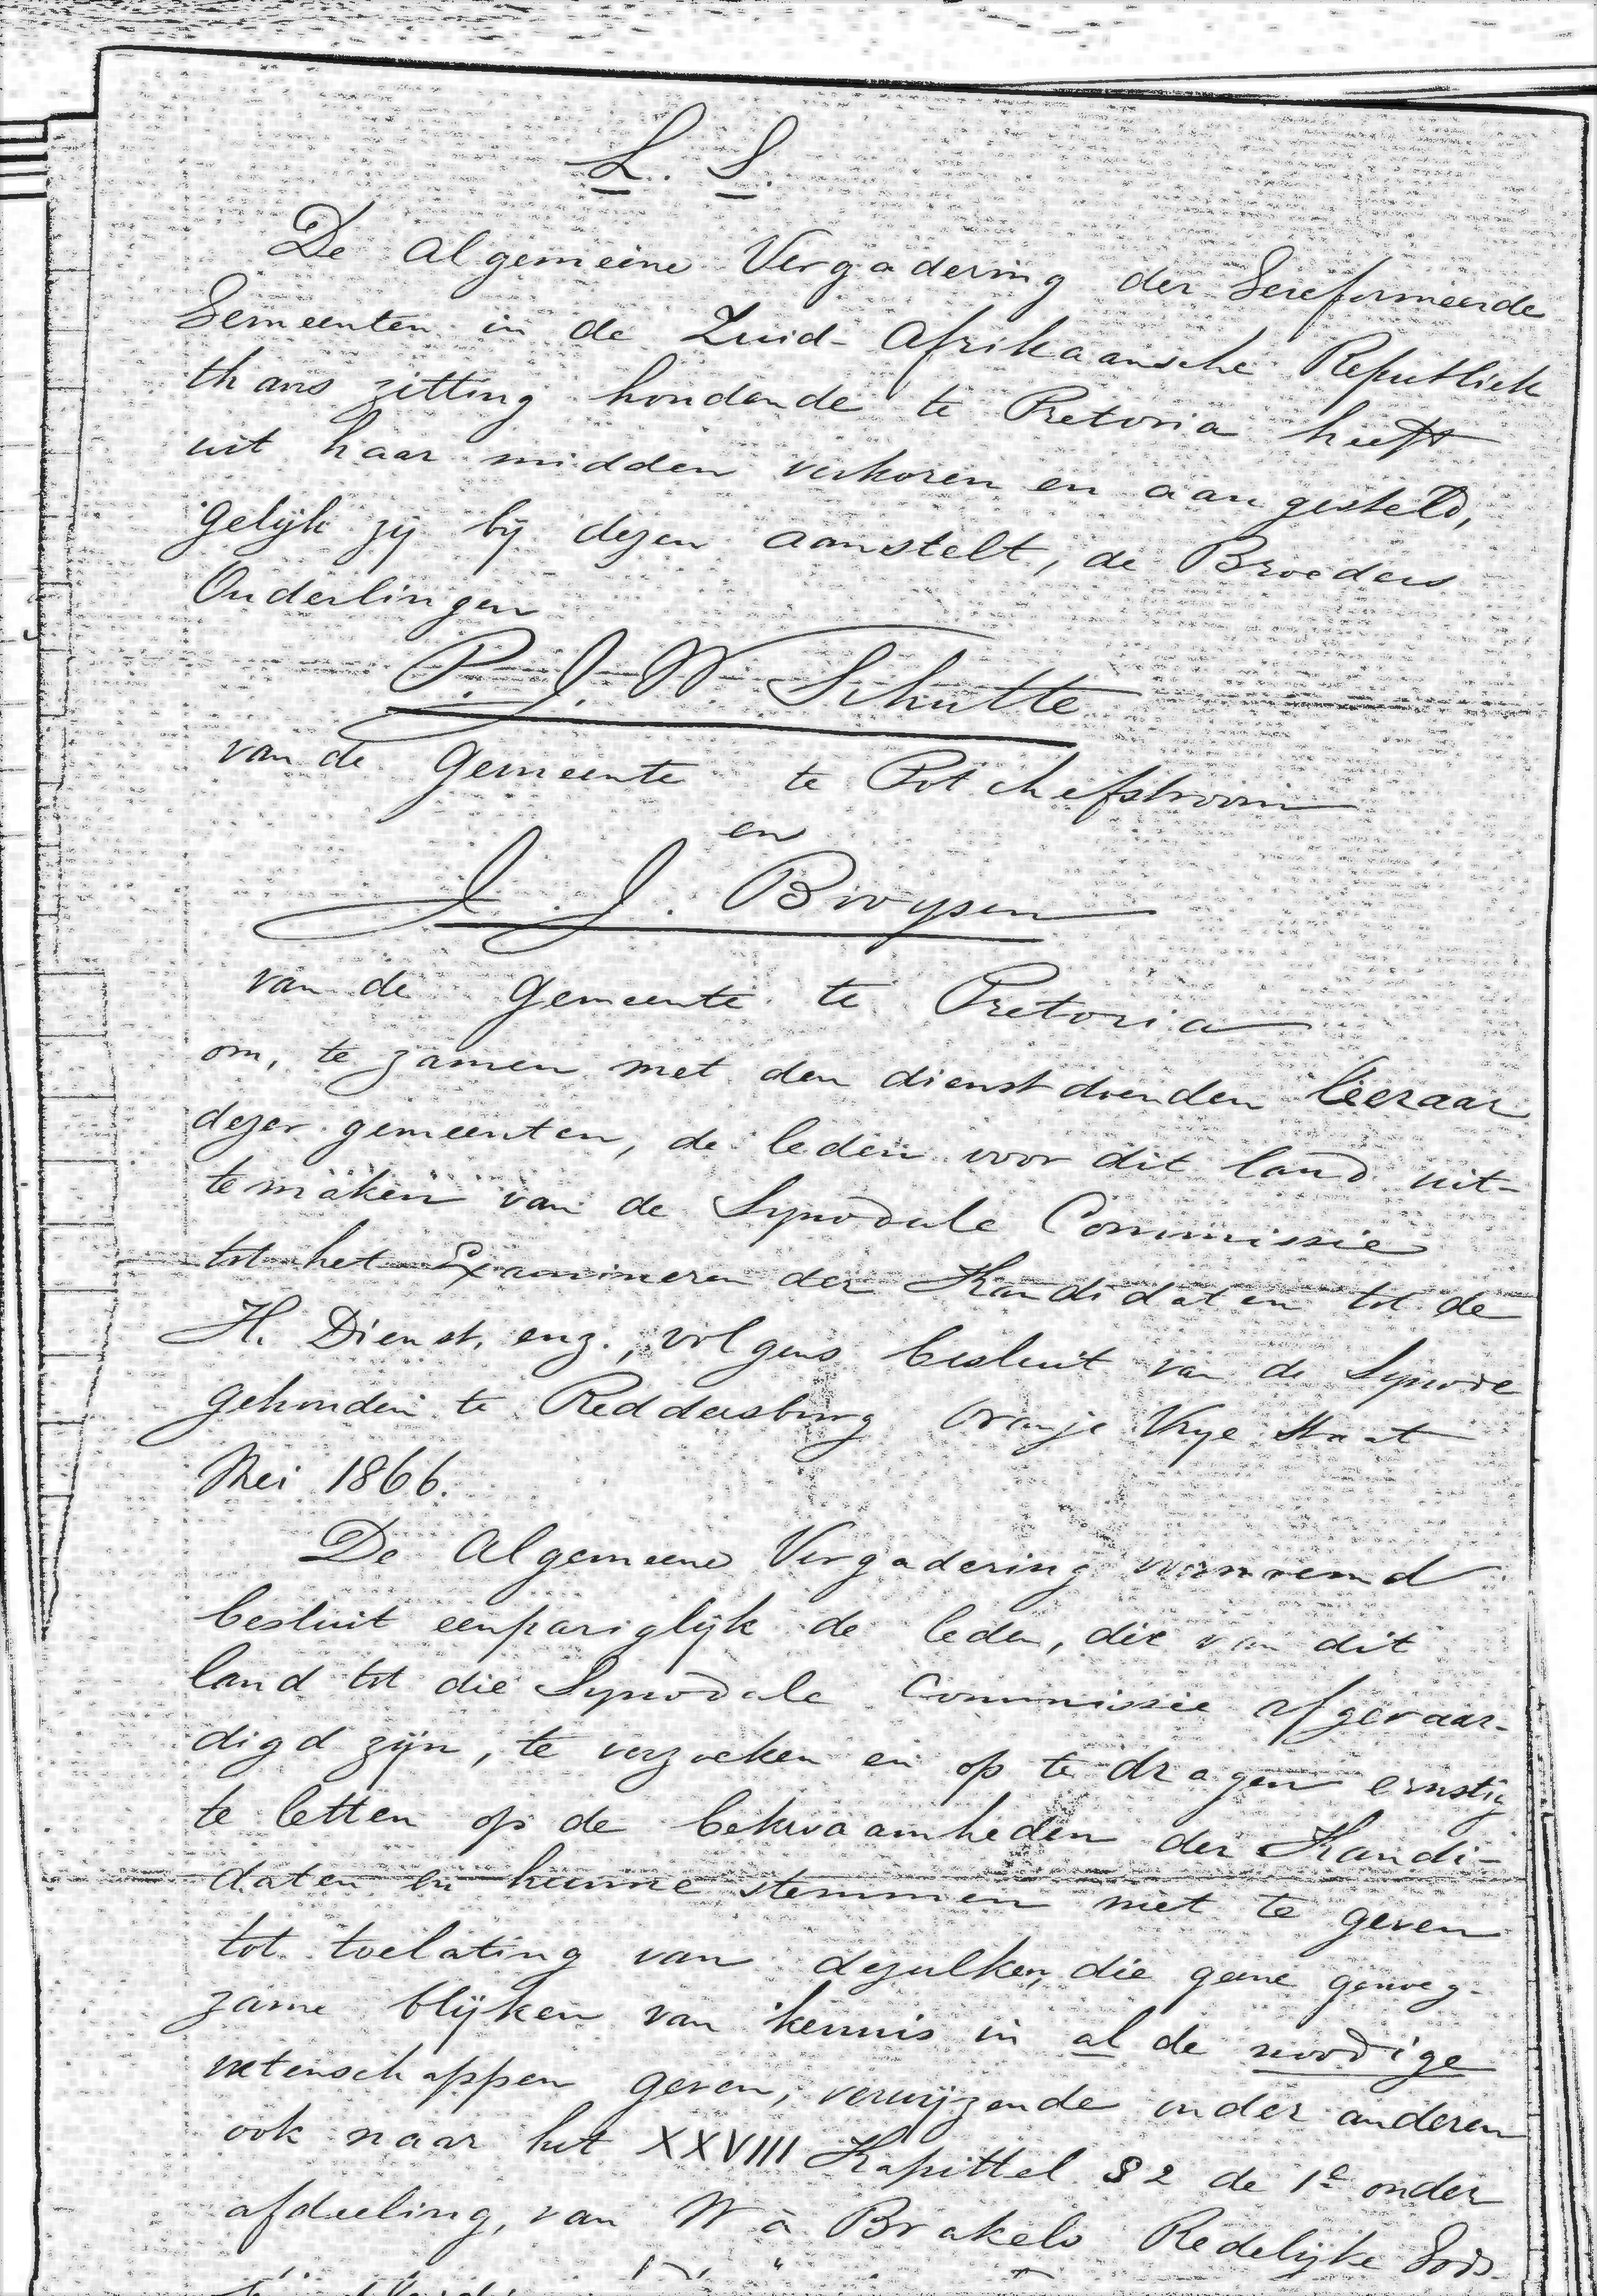 L. S.
De Algemeene Vergadering der Gereformeerde
Gemeenten in de Zuid-Afrikaansche Republiek
thans zitting houdende te Pretoria heeft
uit haar midden verkoren en aangesteld,
gelijk zij bij dezen aanstelt, de Broeders
Ouderlingen
P. J. W. Schutte
van de gemeente te Potchefstroom
en
J. J. Booysen
van de gemeente te Pretoria
om, te zamen met den dienstdoenden leeraar
dezer gemeenten, de leden voor dit land uit-
temaken van de Synodale Commissie
tot het Examineren der Kandidaten tot de
H. Dienst, enz., volgens besluit van de Synode
gehouden te Reddersburg Oranje Vrije Staat
Mei 1866.
De Algemeene Vergadering voornoemd
besluit eenpariglijk de leden, die van dit
land tot die Synodale Commissie afgevaar-
digd zijn, te verzoeken en op te dragen ernstig
te letten op de bekwaamheden der Kandi-
daten en hunne stemmen niet te geven
tot toelating van dezulken, die geene genoeg-
zame blijken van kennis in al de noodige
wetenschappen geven, verwijzende onder anderen
ook naar het XXVIII Kapittel § 2 de 1e onder
afdeeling, van W à Brakels Redelijke Gods-